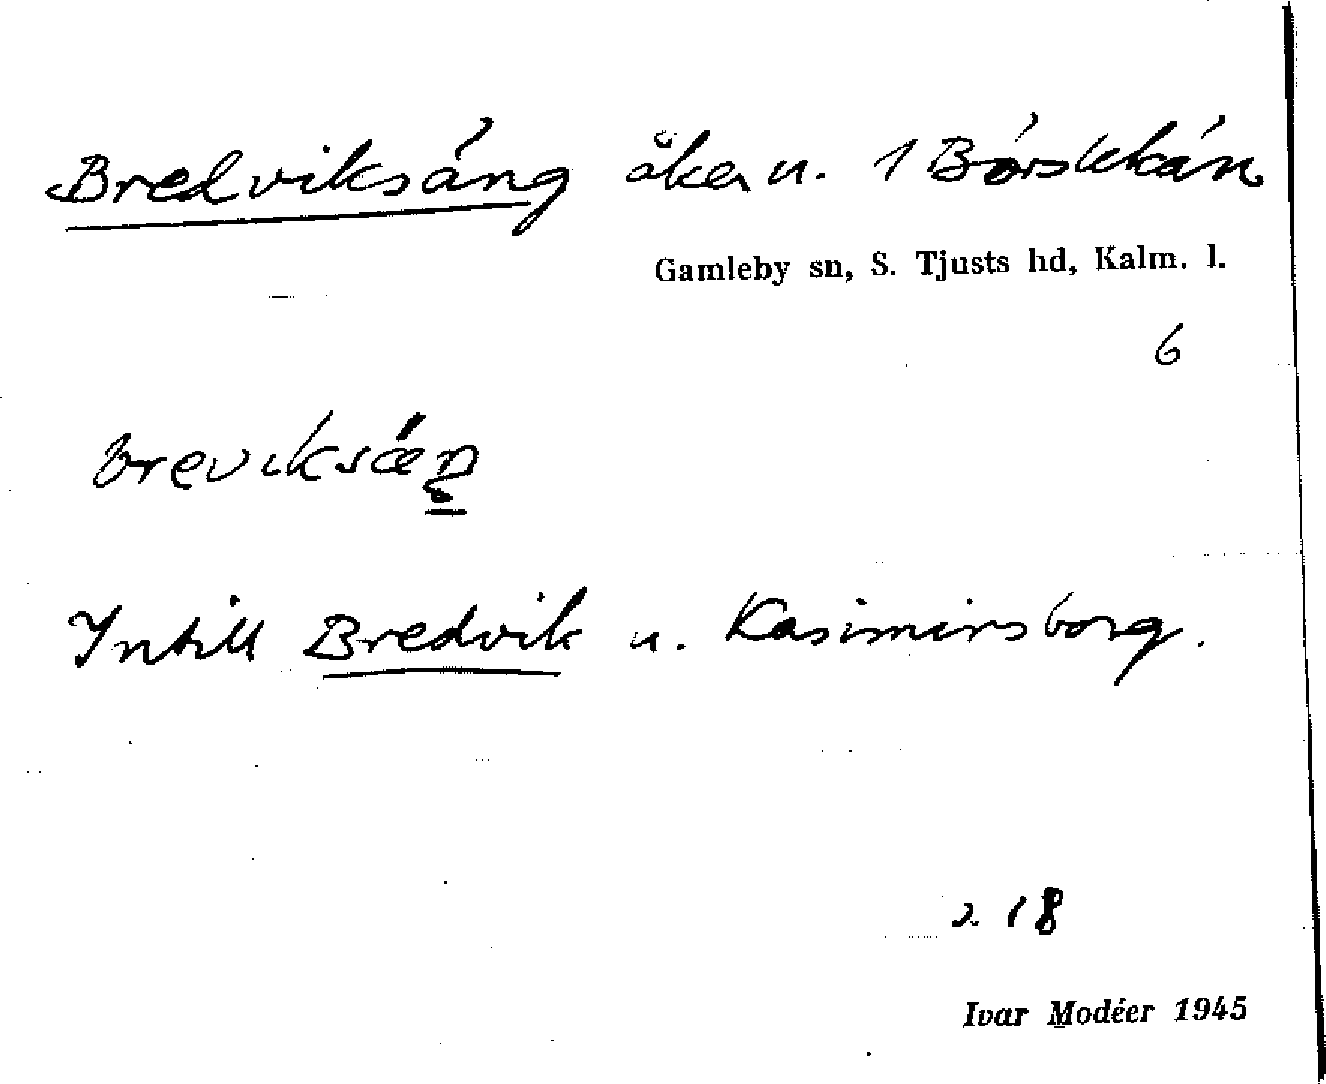 Bredviksäng åker u. 1 Börsekän
Gamleby sn, S. Tjusts hd, Kalm. l.
6
breviksäŋ
Intill Bredvik u. Kasimirsborg.
2 18
Ivar Modéer 1945